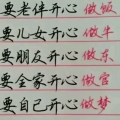 要老伴开心 做饭
要儿女开心 做牛
要朋友开心 做东
要全家开心 做宫
要自己开心 做梦